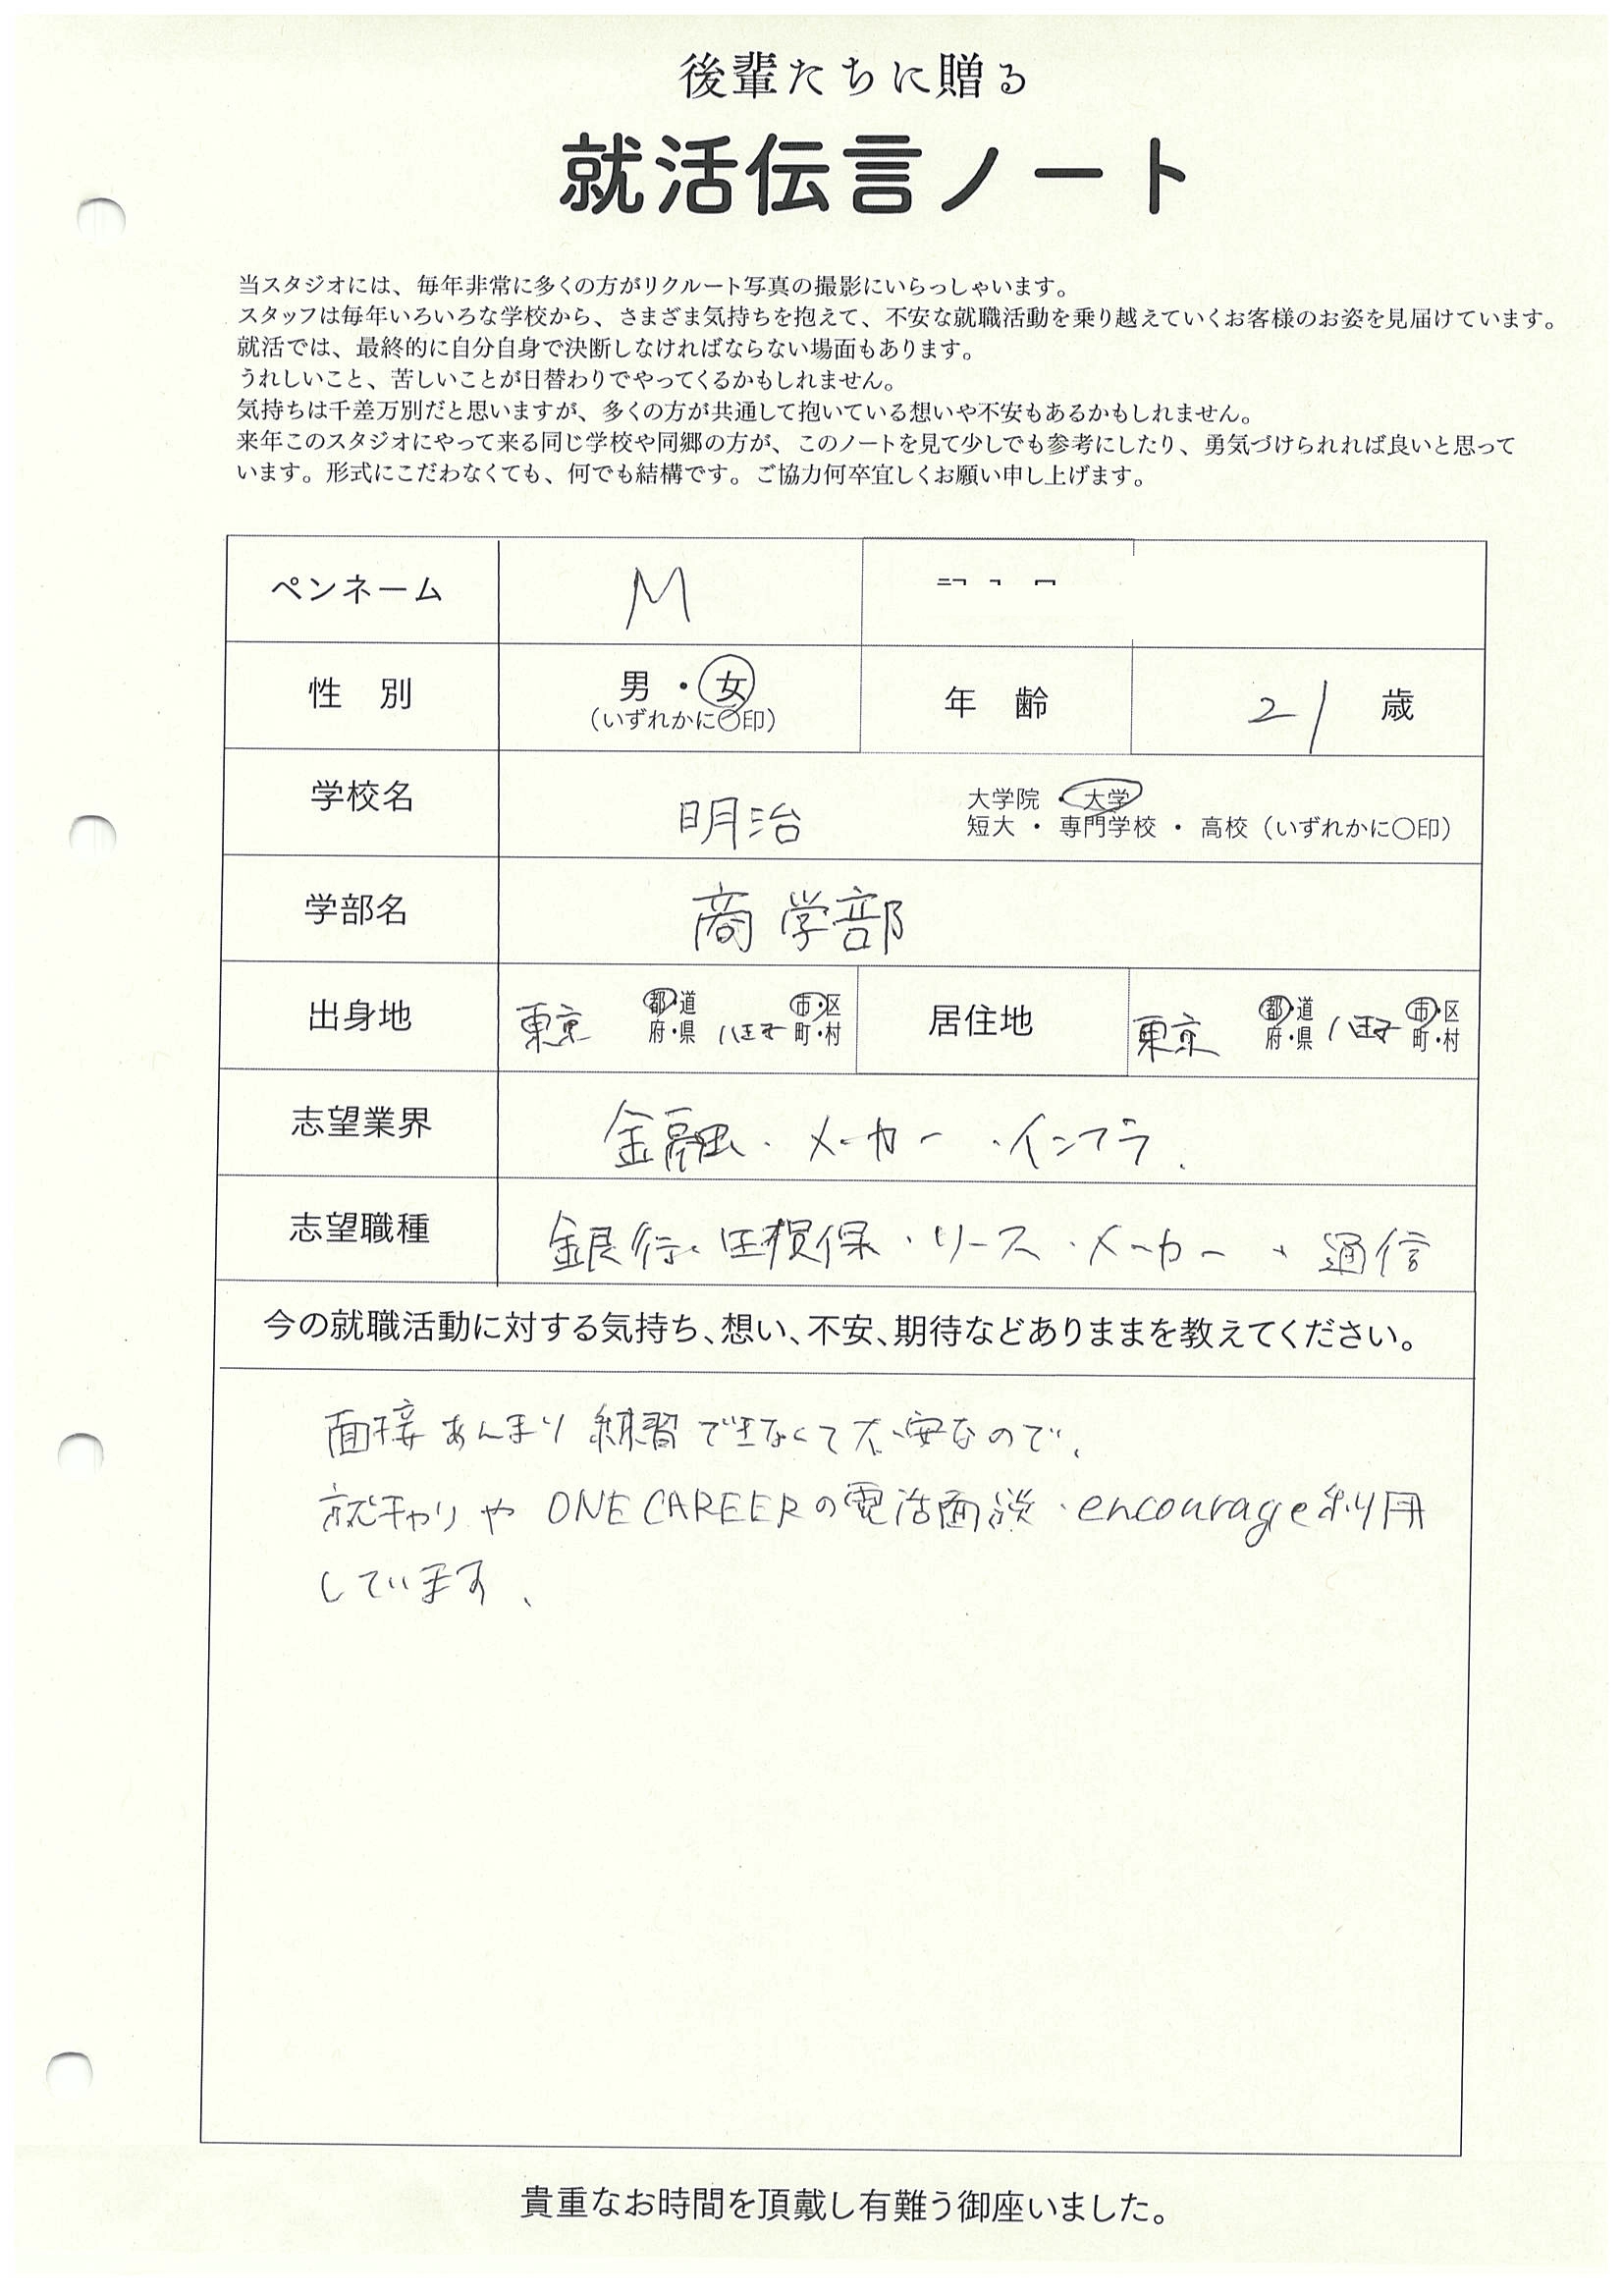 後輩たちに贈る
就活伝言ノート
当スタジオには、毎年非常に多くの方がリクルート写真の撮影にいらっしゃいます。
スタッフは毎年いろいろな学校から、さまざま気持ちを抱えて、不安な就職活動を乗り越えていくお客様のお姿を見届けています。
就活では、最終的に自分自身で決断しなければならない場面もあります。
うれしいこと、苦しいことが日替わりでやってくるかもしれません。
気持ちは千差万別だと思いますが、多くの方が共通して抱いている想いや不安もあるかもしれません。
来年このスタジオにやって来る同じ学校や同郷の方が、このノートを見て少しでも参考にしたり、勇気づけられれば良いと思って
います。形式にこだわなくても、何でも結構です。ご協力何卒宜しくお願い申し上げます。
ペンネーム M
性 別 男・女 (いずれかに〇印) 年 齢 21 歳
学校名 明治 大学院・大学
短大・専門学校・高校(いずれかに〇印)
学部名 商学部
出身地 東京 都・道 府・県 八王子 市・区 町・村 居住地 東京 都・道 府・県 八王子 市・区 町・村
志望業界 金融・メーカー・インフラ.
志望職種 銀行・損保・リース・メーカー・通信
今の就職活動に対する気持ち、想い、不安、期待などありままを教えてください。
面接あんまり練習できなくて不安なので、
就キャリや ONE CAREERの電話面談・encourage利用
しています、
貴重なお時間を頂戴し有難う御座いました。